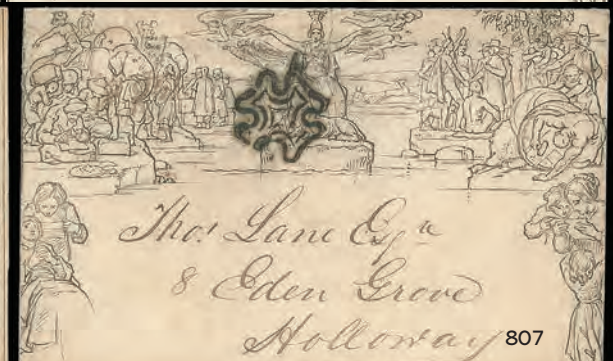 Tho.s Lane Esqre
8 Eden Grove
Holloway
807